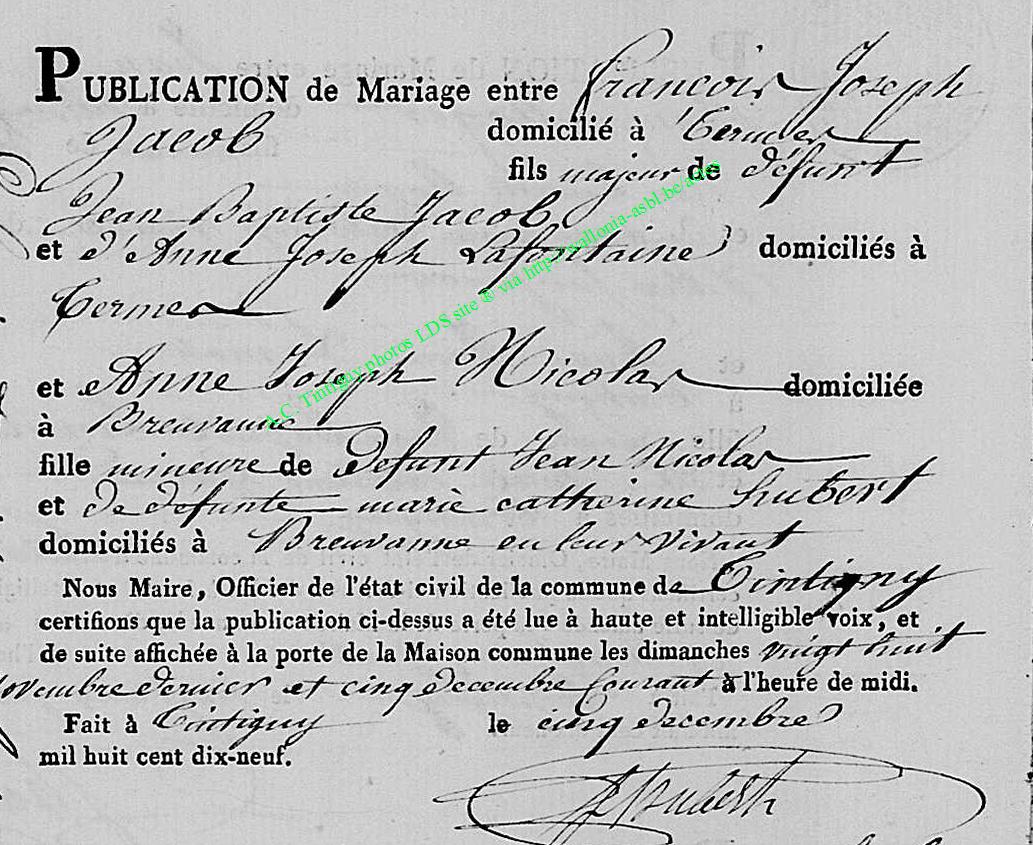 PUBLICATION de Mariage entre françois Joseph
Jacob domicilié à Termes
fils majeur de défunt
Jean Baptiste Jacob
et d'Anne Joseph Lafontaine domiciliés à
Termes
et Anne Joseph Nicolas domiciliée
à Breuvanne
fille mineure de defunt Jean Nicolas
et de défunte marie catherine hubert
domiciliés à Breuvanne en leur vivant
Nous Maire, Officier de l'état civil de la commune de Tintigny
certifions que la publication ci-dessus a été lue à haute et intelligible voix, et
de suite affichée à la porte de la Maison commune les dimanches vingt huit
novembre dernier et cinq decembre courant à l'heure de midi.
Fait à Tintigny le cinq decembre
mil huit cent dix-neuf.
hubert
A.C. Tintigny photos LDS site ® via http://wallonia-asbl.be/actes